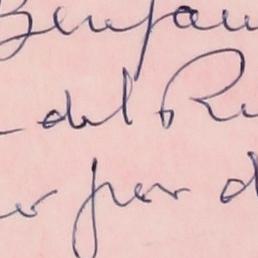 Benjam
del R
er por d